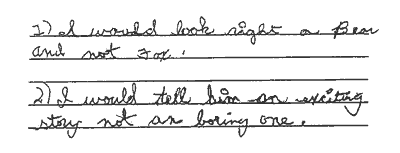 1) I would look right a Bear
and not Fox.
2) I would tell him an exciting
story not an boring one.